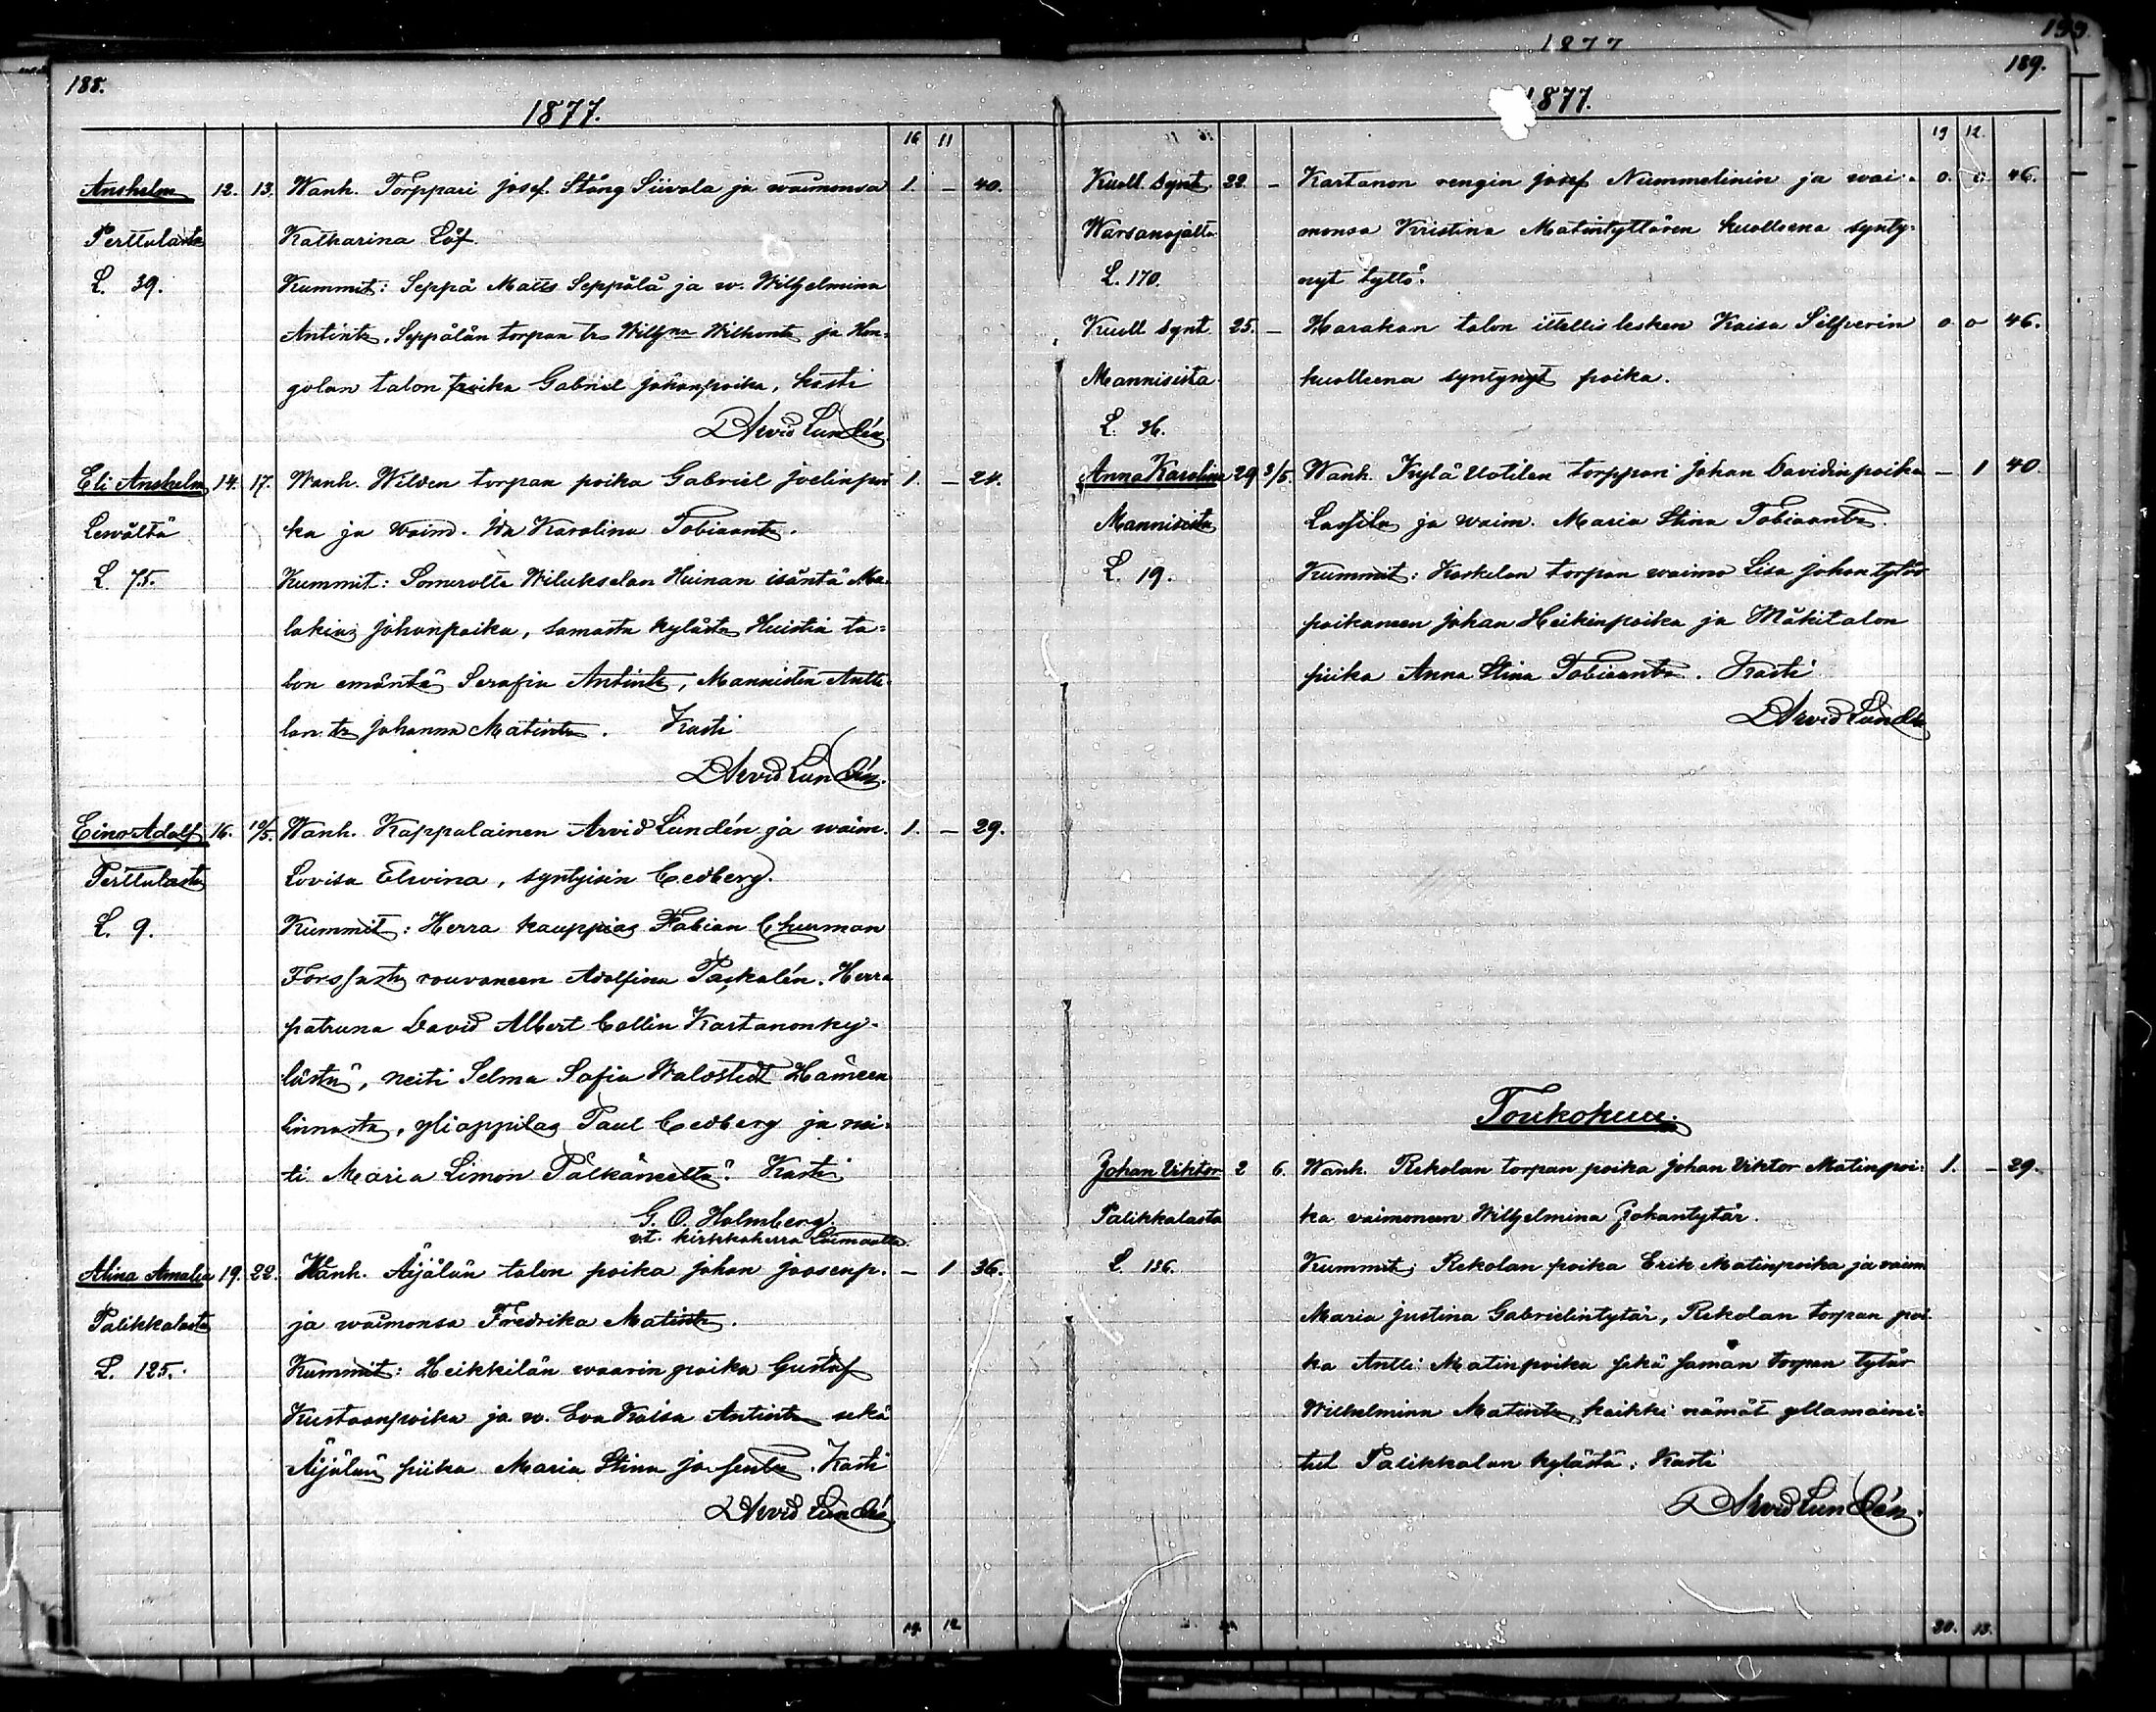 188.
1877.
16 11
Anshelm 12. 13. Wanh. Torppari Josef Stång Siivola ja waimonsa 1. — 40.
Perttulasta Katharina Löf.
L. 39. Kummit: Seppä Matts Seppälä ja w. Wilhelmina
Antintr, Seppälän torpan tr Wilhna Wilhontr ja Hon-
golan talon poika Gabriel Johanpoika, kasti
Arvid Lundén.
Eli Anshelm 14. 17. Wanh. Wilden torpan poika Gabriel Joelinpoi 1. — 24.
Lewältä ka ja waim. Ida Karolina Tobiaantr.
L. 75. Kummit: Somerolta Wilukselan Heinan isäntä Ma-
lakias Johanpoika, samasta kylästä Huistin ta-
lon emäntä Serafia Antintr, Mannisten Antti-
lan tr Johanna Matintr. Kasti
Arvid Lundén.
Eino Adolf 16. 10/5. Wanh. Kappalainen Arvid Lundén ja waim. 1. — 29.
Perttulasta Lovisa Elwina, syntyisin Cedberg.
L. 9. Kummit: Herra kauppias Fabian
Forssasta rouvaneen Adolfina Paskalén. Herra
patruna David Albert Collin Kartanonky-
lästä, neiti Selma Sofia Waldstedt Hämeen
linnasta, ylioppilas Paul Cedberg ja nei-
ti Maria Limon Pälkäneeltä. Kasti
G. O. Holmberg.
vt. kirkkoherra Loimaalla.
Alina Amalia 19. 22. Wanh. Äijälän talon poika Johan Joosenp. — 1 36.
Palikkalasta ja waimonsa Fredrika Matintr.
L. 125. Kummit: Heikkilän waarin poika Gustaf
Kustaanpoika ja w. Eva Kaisa Antintr sekä
Äijälän piika Maria Stina Josefintr. Kasti
Arvid Lundén
19. 12
1877
199.
189.
1877.
19 12.
Kuoll. Synt. 22. — Kartanon rengin Josef Nummelinin ja wai- 0. 0 46.
Warsanojalta monsa Kristina Matintyttären kuolleena synty-
L. 170. nyt tyttö.
Kuoll Synt. 25. — Harakan talon itellis lesken Kaisa Silfverin 0 0 46.
Mannisista kuolleena syntynyt poika.
L. 36.
Anna Karolina 29 3/5. Wanh. Kylä Uotilan torppari Johan Davidinpoika — 1 40
Mannisista Lassila ja waim. Maria Stina Tobiaantr.
L. 19. Kummit: Korkelan torpan waimo Lisa Johantytär
poikaneen Johan Heikinpoika ja Mäkitalon
piika Anna Stina Tobiaantr. Kasti
Arvid Lundén
Toukokuu.
Johan Viktor 2 6. Wanh. Rekolan torpan poika Johan Viktor Matinpoi- 1. — 29.
Palikkalasta ka vaimoneen Wilhelmina Johantytär.
L. 136. Kummit: Rekolan poika Erik Matinpoika ja vaim
Maria Justina Gabrielintytär, Rekolan torpan poi-
ka Antti Matinpoika sekä saman torpan tytär
Wilhelmina Matintr, kaikki nämät yllämaini-
tut Palikkalan kylästä. Kasti
Arvid Lundén.
20. 13.